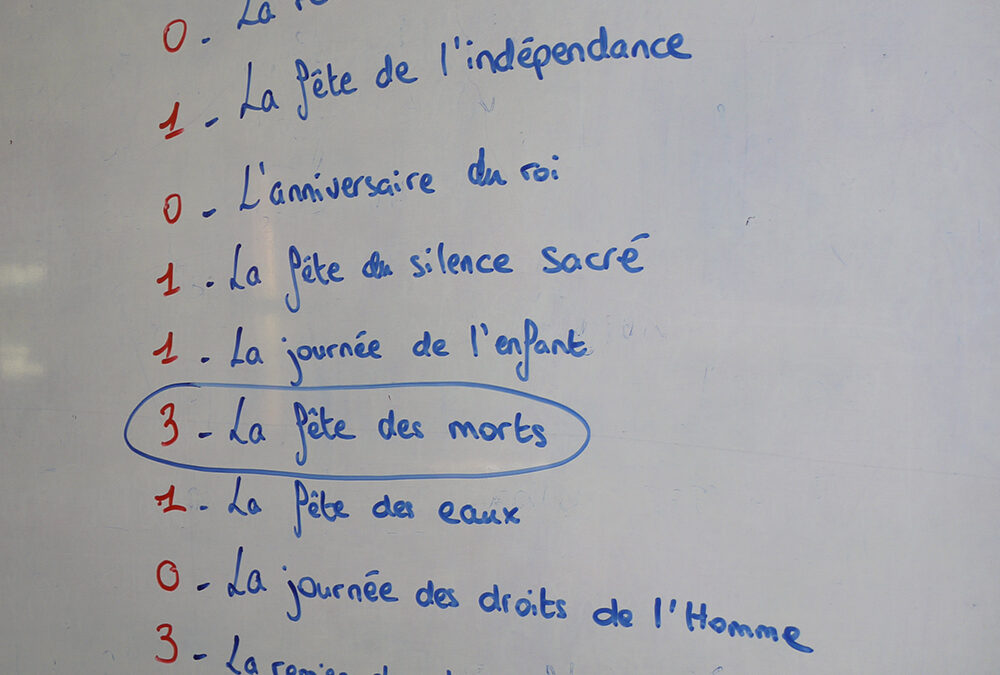 0 - La
1 - La fête de l'indépendance
0 - L'anniversaire du roi
1 - La fête du silence sacré
1 - La journée de l'enfant
3 - La fête des morts
1 - La fête des eaux
0 - La journée des droits de l'Homme
3 - La